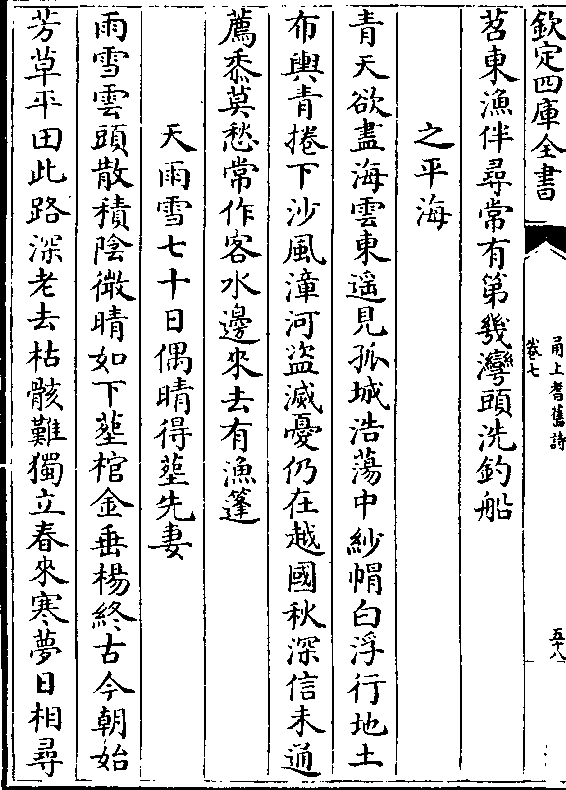 欽定四庫全書
甬上耆舊詩
卷七
五十八
苕東漁伴尋常有第幾灣頭洗釣船
之平海
青天欲盡海雲東遥見孤城浩蕩中紗帽白浮行地土
布輿青捲下沙風漳河盜滅憂仍在越國秋深信未通
薦黍莫愁常作客水邊來去有漁篷
天雨雪七十日偶晴得塟先妻
雨雪雲頭散積陰微晴如下塟棺金垂楊終古今朝始
芳草平田此路深老去枯骸難獨立春來寒夢日相尋